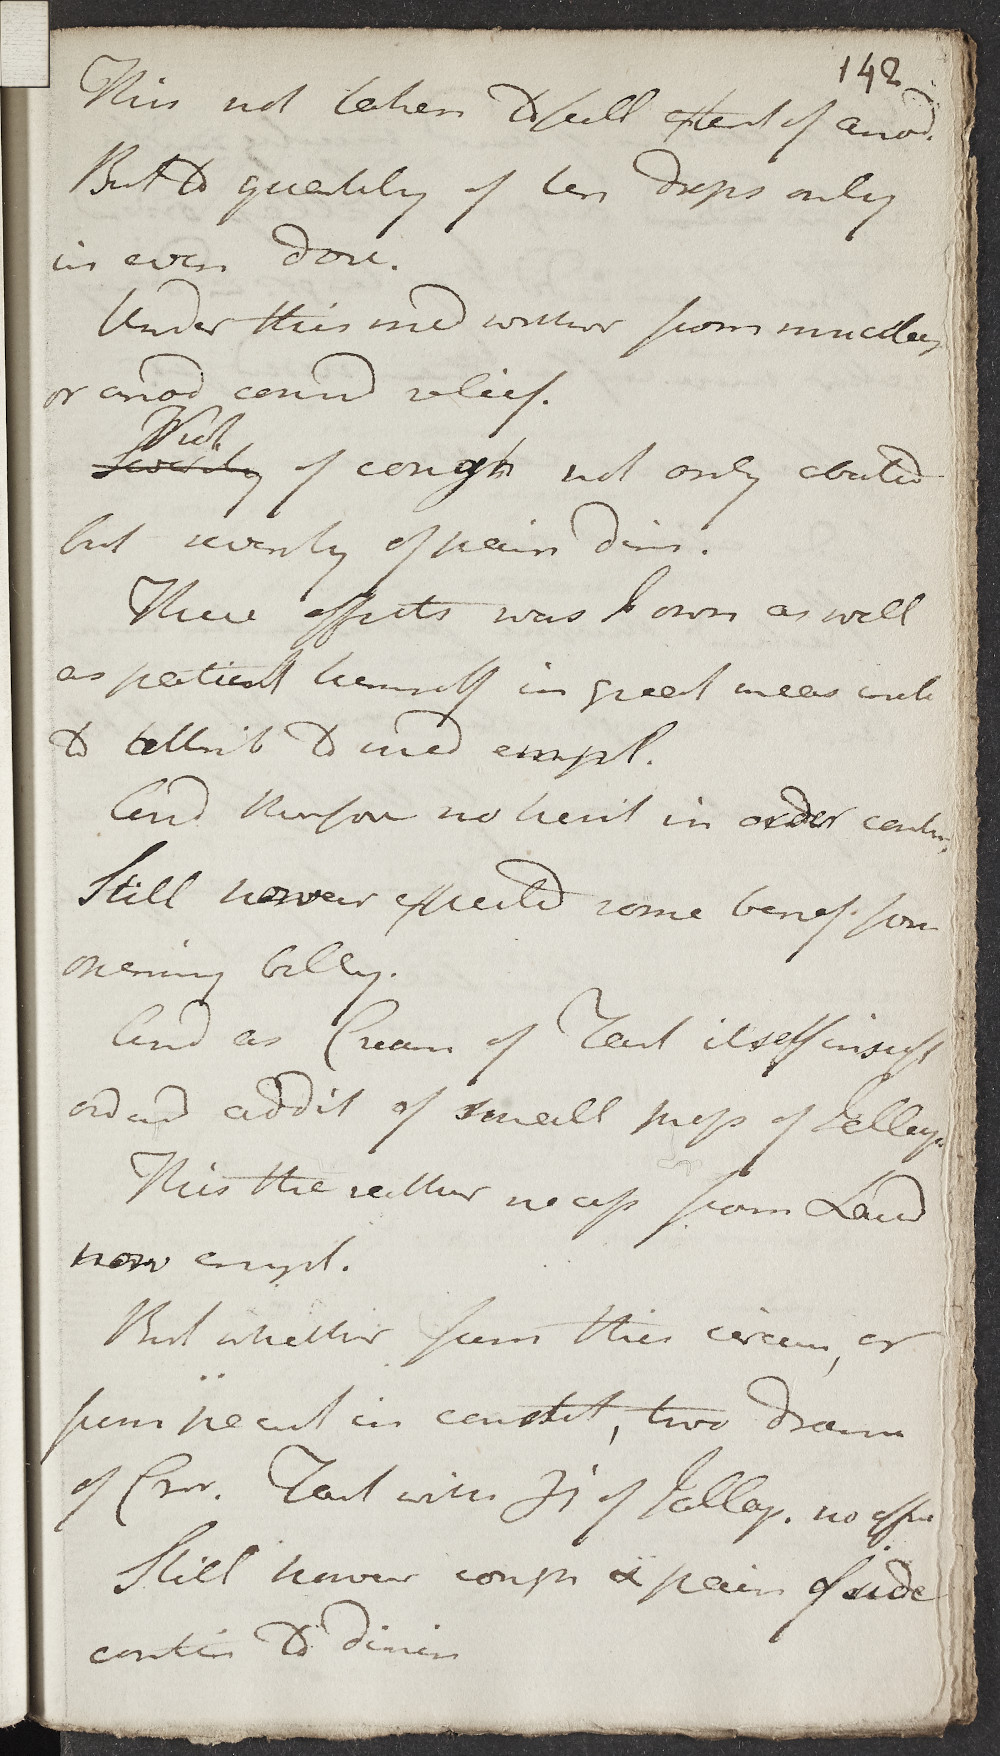 142
This not taken to full extent of anod.
But to quantity of ten drops only
in even dose.
Under this med whether from mucilag
or anod cenud relief.
Viol
Severity of cough not only abated
but severity of pain dim.
These effects was I own as well
as patient himself in great meas incl
to attrib to med empl.
And therefore no hesit in order contin,
Still however expected some benef. from
opening belly.
And as Cream of Tart itself insuff
ord an addit of small prop of Jallap.
This the rather necess from Laud
now empl.
But whether from this circum, or
from pecul in constit, two drams
of Crem. Tart with ℈j of Jallap. no effec
Still however cough & pain of side
contin to dimin